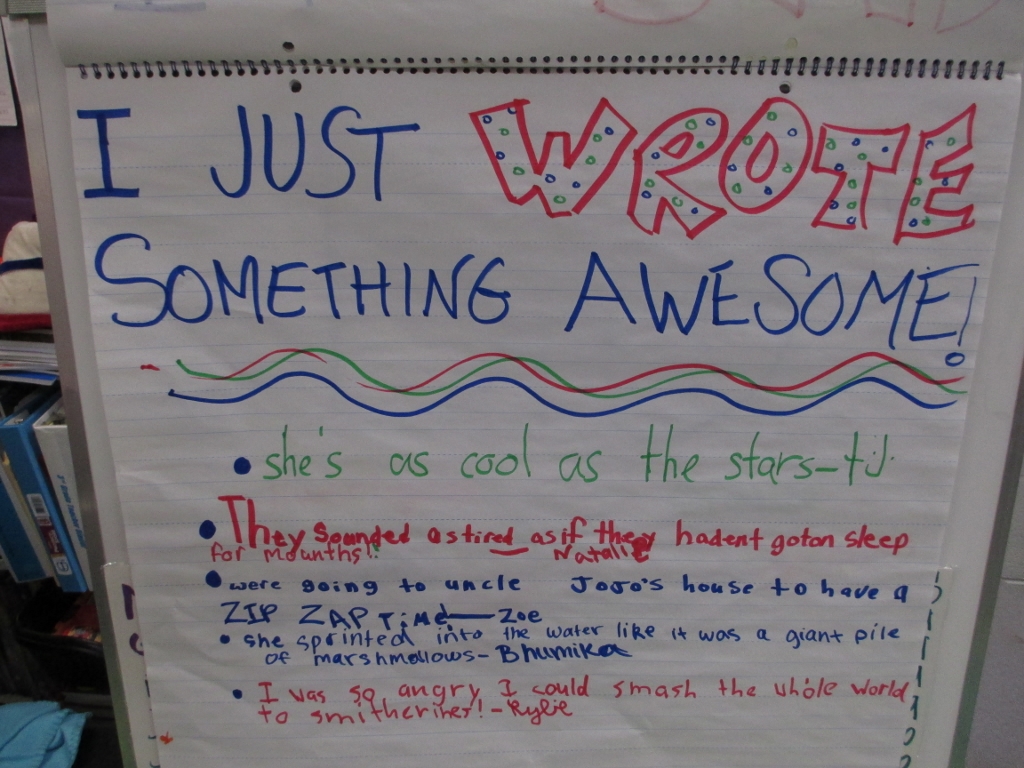 I JUST WROTE
SOMETHING AWESOME!
• she's as cool as the stars-tJ.
• They Sounded as tired as if they hadent goton sleep
for mounths!! Natalie
• were going to uncle JoJo's house to have a
ZIP ZAP Time—Zoe
• she sprinted into the water like it was a giant pile
of marshmellows-Bhumika
• I was so angry I could smash the whole world
to smitherines!-Kylie